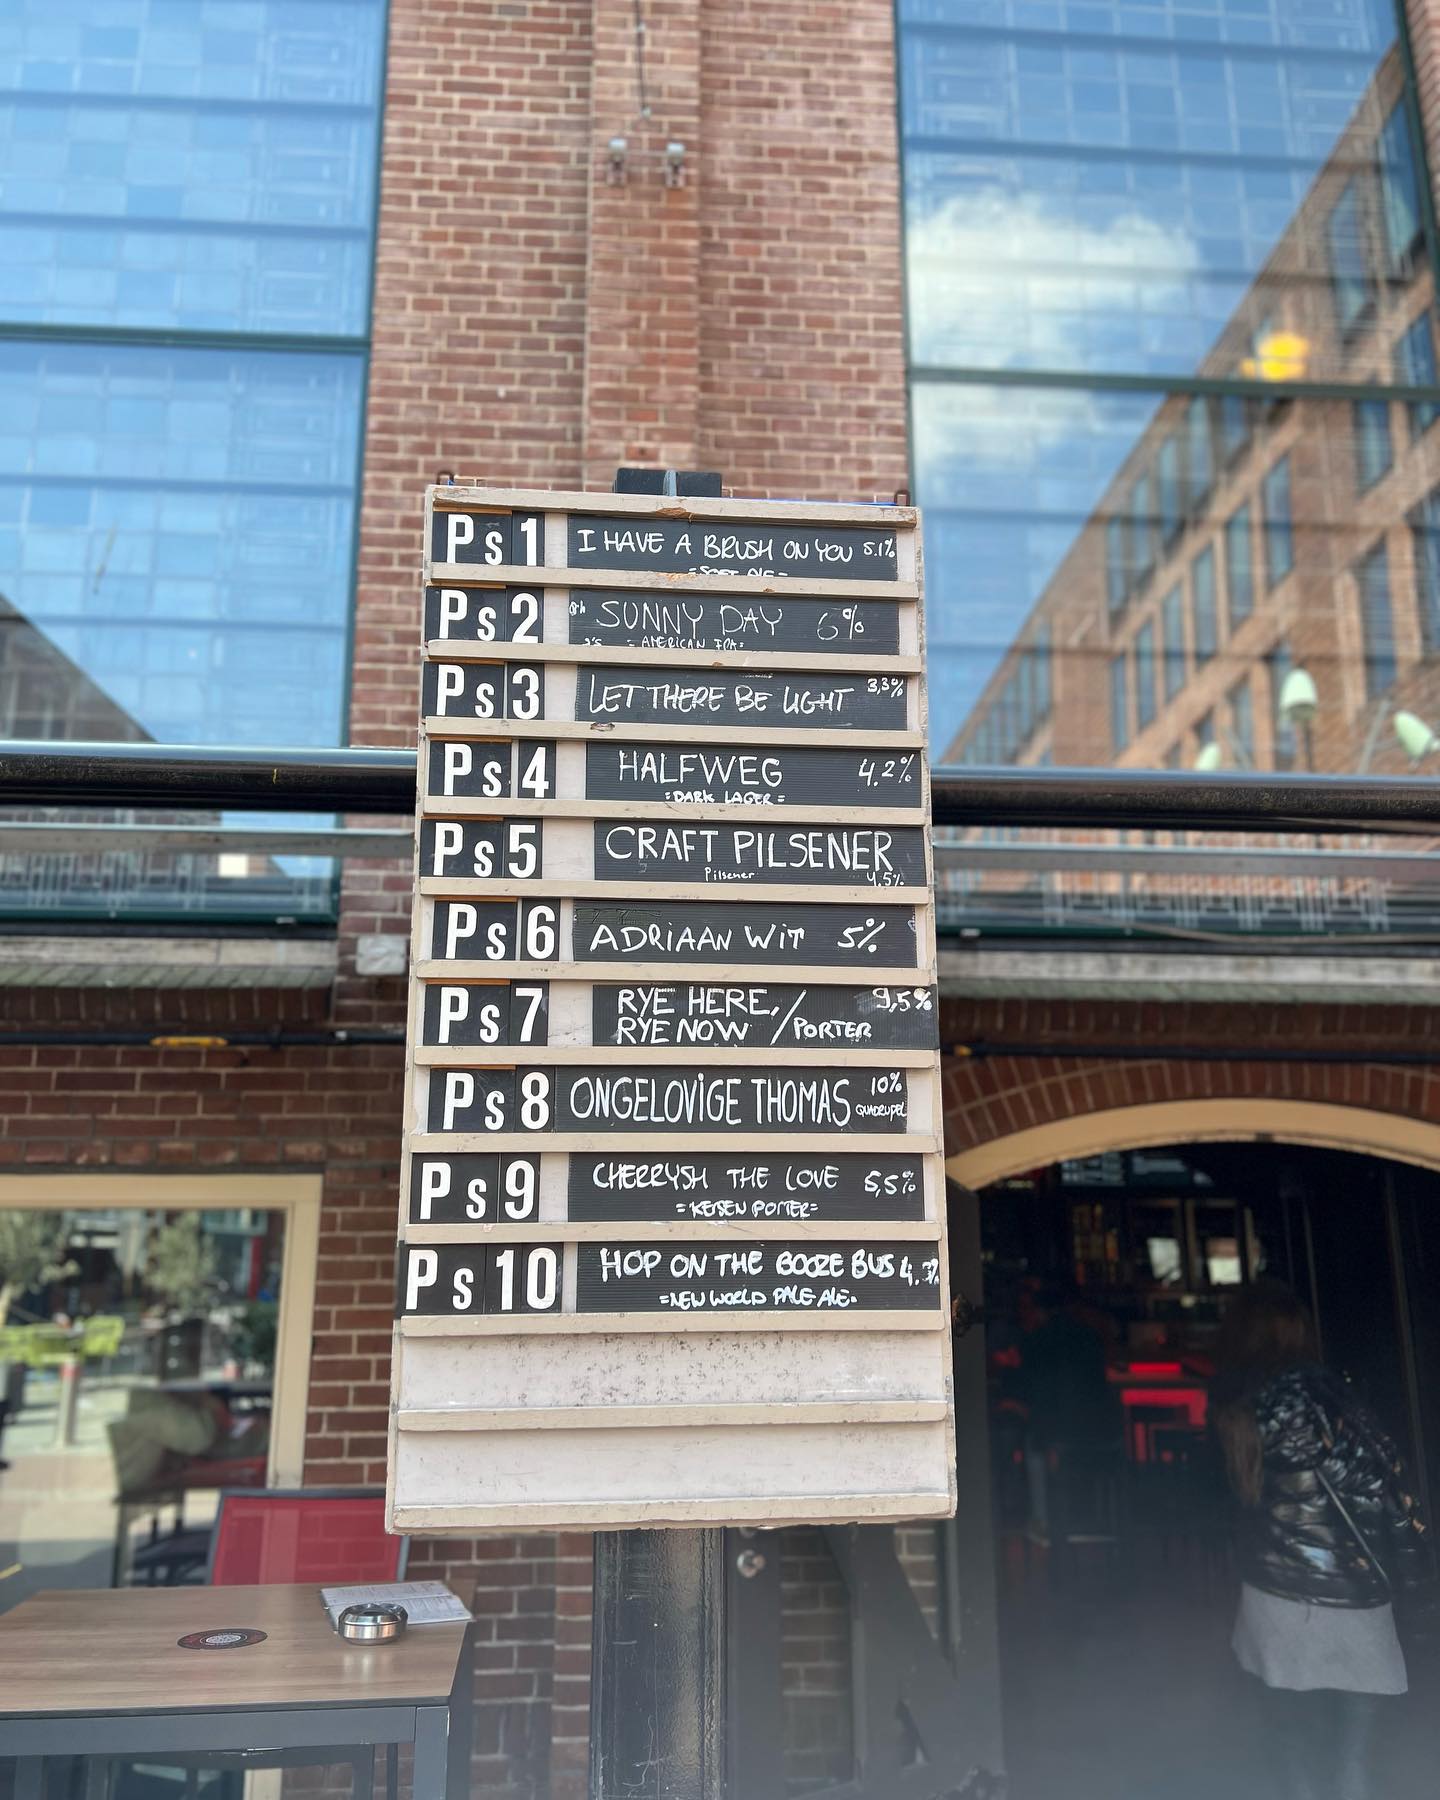 Ps1 I HAVE A BRUSH ON YOU 5.1%
=SOFT ALE=
Ps2 SUNNY DAY 6%
=AMERICAN IPA=
Ps3 LET THERE BE LIGHT 3,3%
Ps4 HALFWEG 4.2%
=DARK LAGER=
Ps5 CRAFT PILSENER
Pilsener 4,5%
Ps6 ADRIAAN WIT 5%
Ps7 RYE HERE, 9,5%
RYE NOW / PORTER
Ps8 ONGELOViGE THOMAS 10%
QUADRUPEL
Ps9 CHERRYSH THE LOVE 5,5%
=KERSEN PORTER=
Ps10 HOP ON THE BOOZE BUS 4.3%
=NEW WORLD PALE ALE=